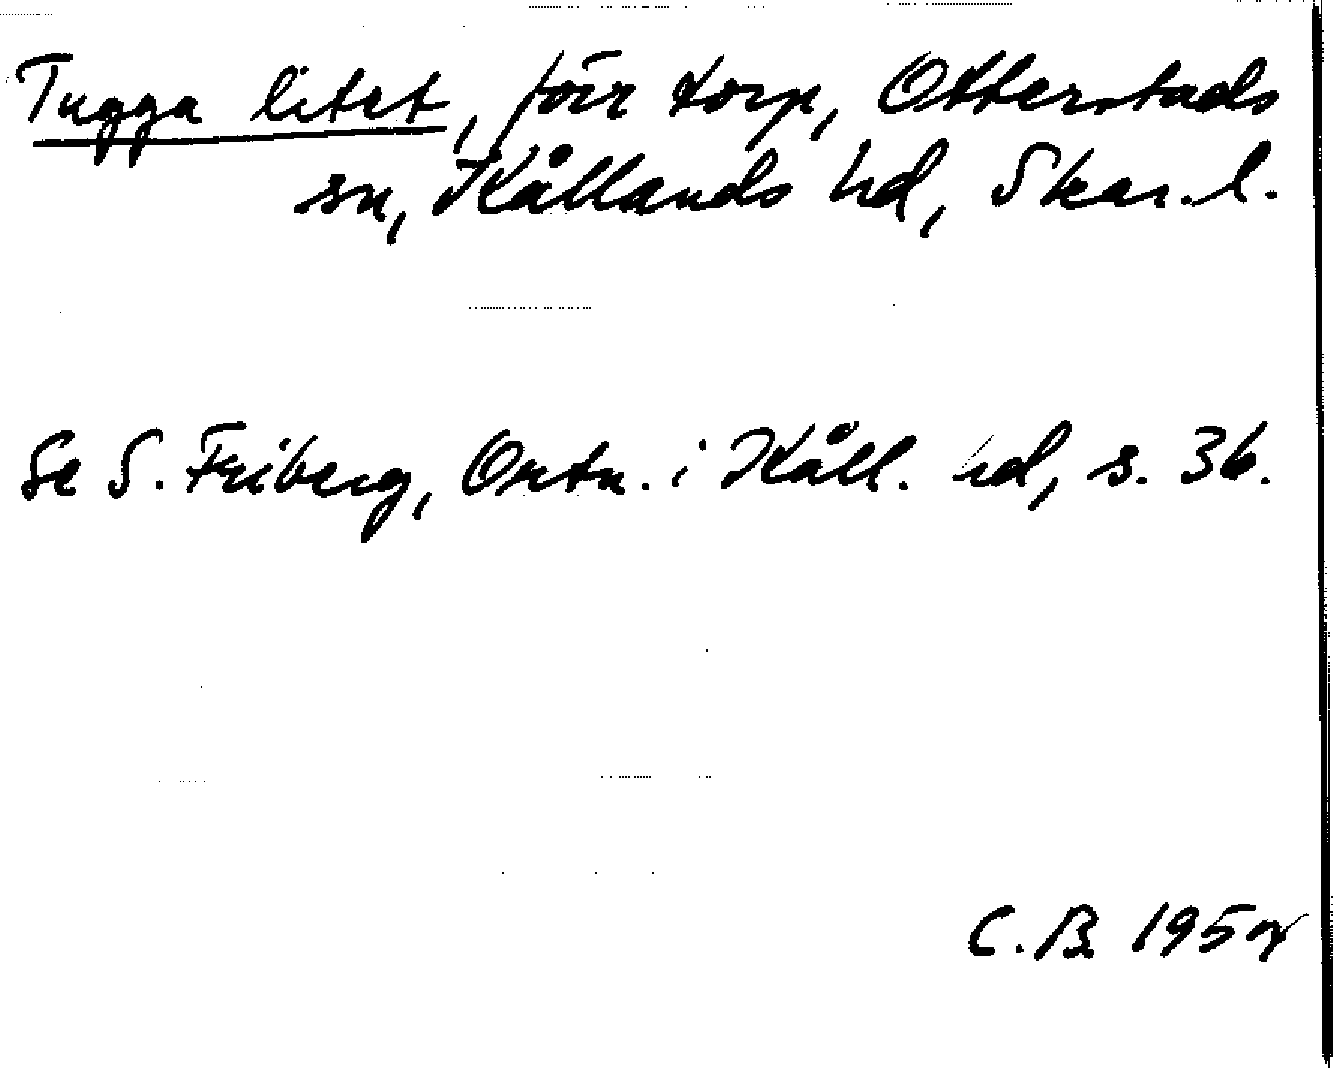 Tugga litet, förr torp, Otterstads
sn, Kållands hd, Skar. l.
Se S. Friberg, Ortn. i Kåll. hd, s. 36.
C. B.